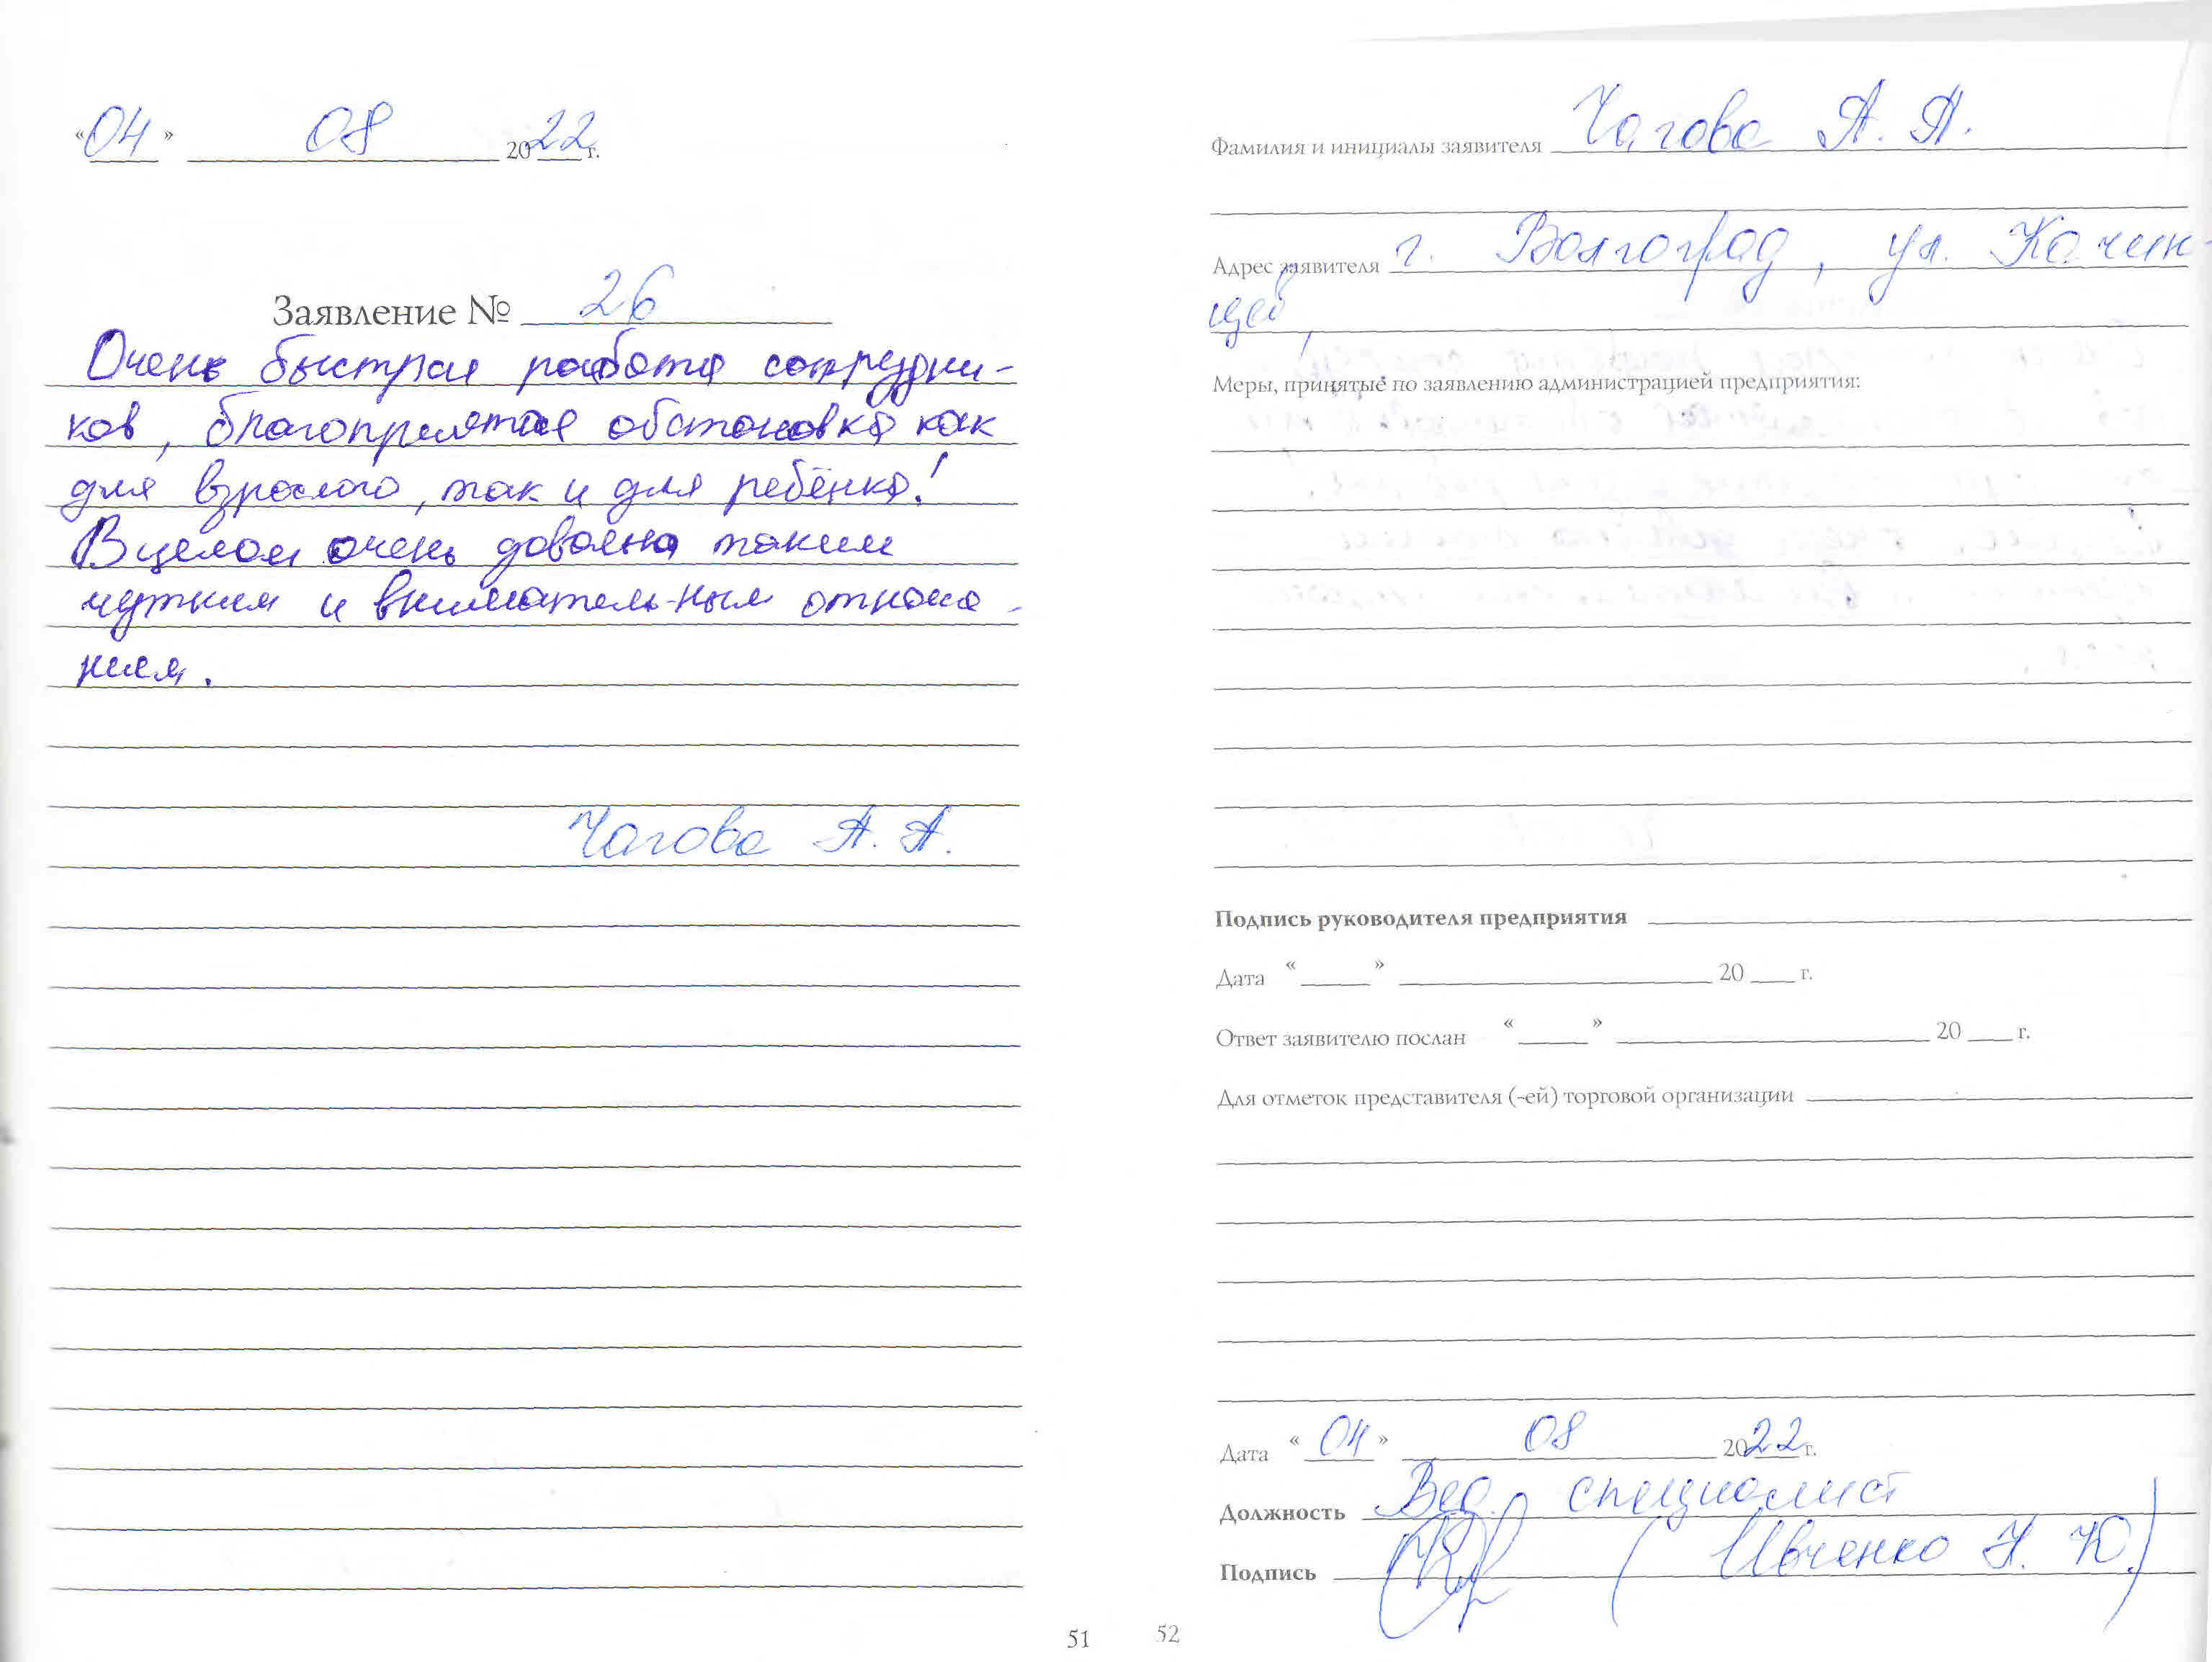 «04» 08 2022 г.
Заявление № 26
Очень быстрая работа сотрудни-
ков, благоприятная обстановка как
для взрослого, так и для ребёнка!
В целом очень довольна таким
чутким и внимательным отноше-
нием.
Чагова А. А.
51
Фамилия и инициалы заявителя Чагова А. А.
Адрес заявителя г. Волгоград, ул. Качин-
цев,
Меры, принятые по заявлению администрацией предприятия:
Подпись руководителя предприятия
Дата « » 20 г.
Ответ заявителю послан « » 20 г.
Для отметок представителя (-ей) торговой организации
Дата «04» 08 2022 г.
Должность Вед. специалист
Подпись (Ивченко Н. Ю.)
52